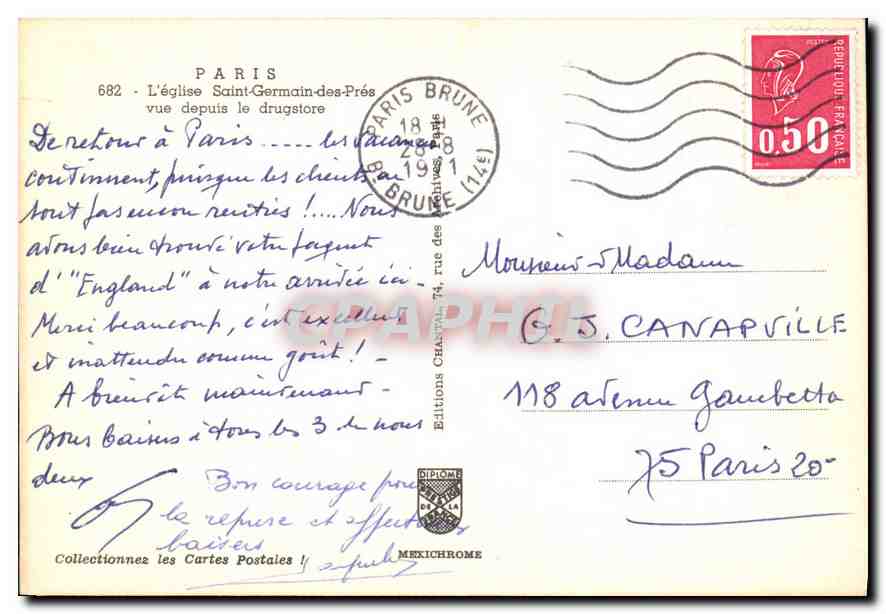 PARIS
682 - L'église Saint-Germain-des-Prés
vue depuis le drugstore
De retour à Paris ..... les vacances
continuent, puisque les clients
sont pas encore rentrés !.... Nous
avons bien trouvé votre paquet
d' "England" à notre arrivée ici -
Merci beaucoup, c'est excellent
et inattendu comme goût ! -
A bientôt maintenant -
Bons baisers à tous les 3 de nous
deux
Bon courage pour
la reprise et affectueux
baisers
Collectionnez les Cartes Postales !
Editions CHANTAL, 74, rue des Archives, Paris
DIPLOME
PRESTIGE
DE LA
FRANCE
MEXICHROME
PARIS BRUNE
18 H
28-8
1971
B. BRUNE (14e)
POSTES
REPUBLIQUE FRANÇAISE
0,50
Monsieur & Madame
G. J. CANAPVILLE
118 avenue Gambetta
75 Paris 20e
CPAPHIL